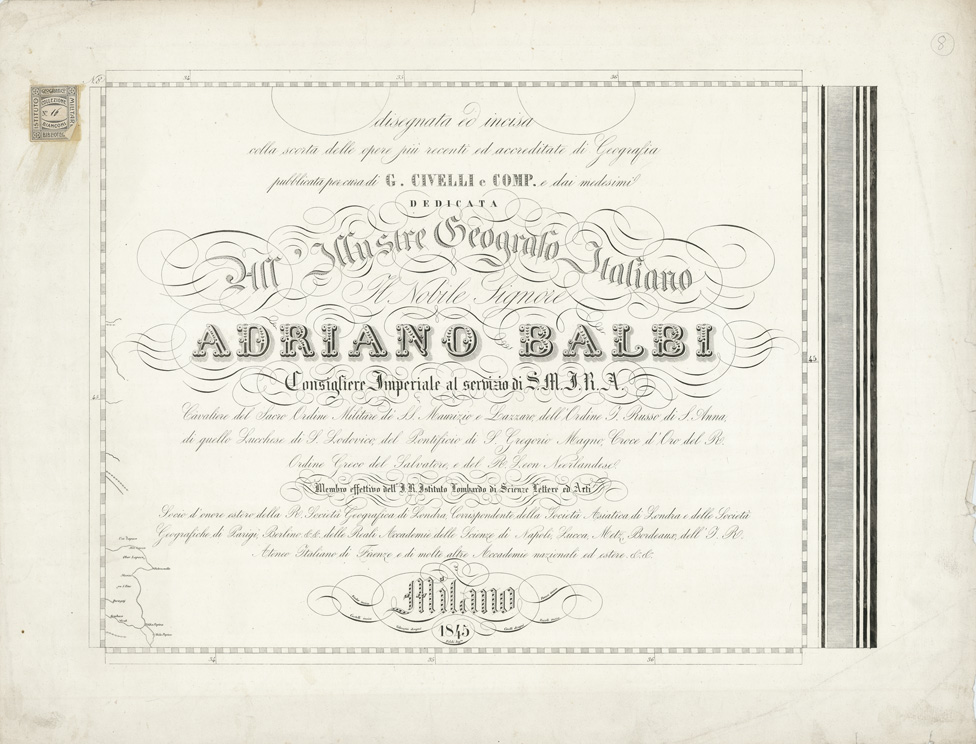 8
34 35 36
ISTITUTO GEOGRAFICO MILITARE
COLLEZIONE
BIANCONI
disegnata ed incisa
colla scorta delle opere più recenti ed accreditate di Geografia
pubblicata per cura di G. CIVELLI e COMP. e dai medesimi
DEDICATA
All' Illustre Geografo Italiano
Il Nobile Signore
ADRIANO BALBI
Consigliere Imperiale al servizio di S.M.I.R.A.
45
Cavaliere del Sacro Ordine Militare de SS. Maurizio e Lazzaro, dell'Ordine I. Russo di S. Anna,
di quello Lucchese di S. Lodovico, del Pontificio di S. Gregorio Magno, Croce d'Oro del R.
Ordine Greco del Salvatore, e del R. Leon Neerlandese.
Membro effettivo dell'I.R. Istituto Lombardo di Scienze Lettere ed Arti
Socio d'onore estero della R. Società Geografica di Londra, Corrispondente della Società Asiatica di Londra e delle Società
Geografiche di Parigi, Berlino &.&. delle Reali Accademie delle Scienze di Napoli, Lucca, Metz, Bordeaux, dell' I. R.
Ateneo Italiano di Firenze e di molte altre Accademie nazionali ed estere. &.&.
Milano
1845
34 35 36